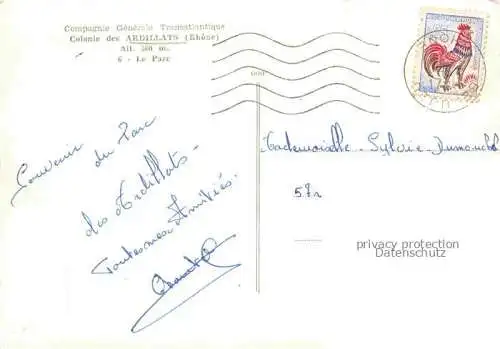 Compagnie Générale Transatlantique
Colonie des ARDILLATS (Rhône)
Alt. 560 m.
6 - Le Parc
Souvenir du Parc
des Ardillats -
Toutes mes Amitiés.
Mademoiselle Sylvie
57
privacy protection
Datenschutz